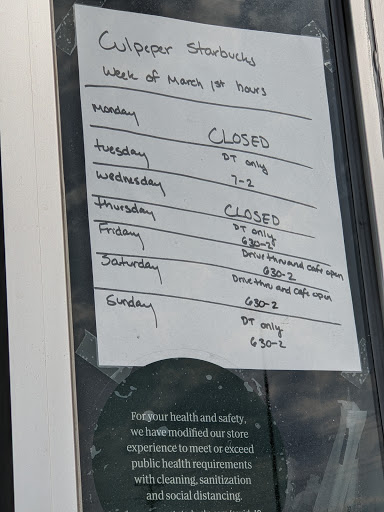 Culpeper Starbucks
Week of March 1st hours
Monday CLOSED
tuesday DT only
7-2
Wednesday CLOSED
thursday DT only
630-2
Friday Drive thru and cafe open
630-2
Saturday Drive thru and cafe open
630-2
Sunday DT only
630-2
For your health and safety,
we have modified our store
experience to meet or exceed
public health requirements
with cleaning, sanitization
and social distancing.